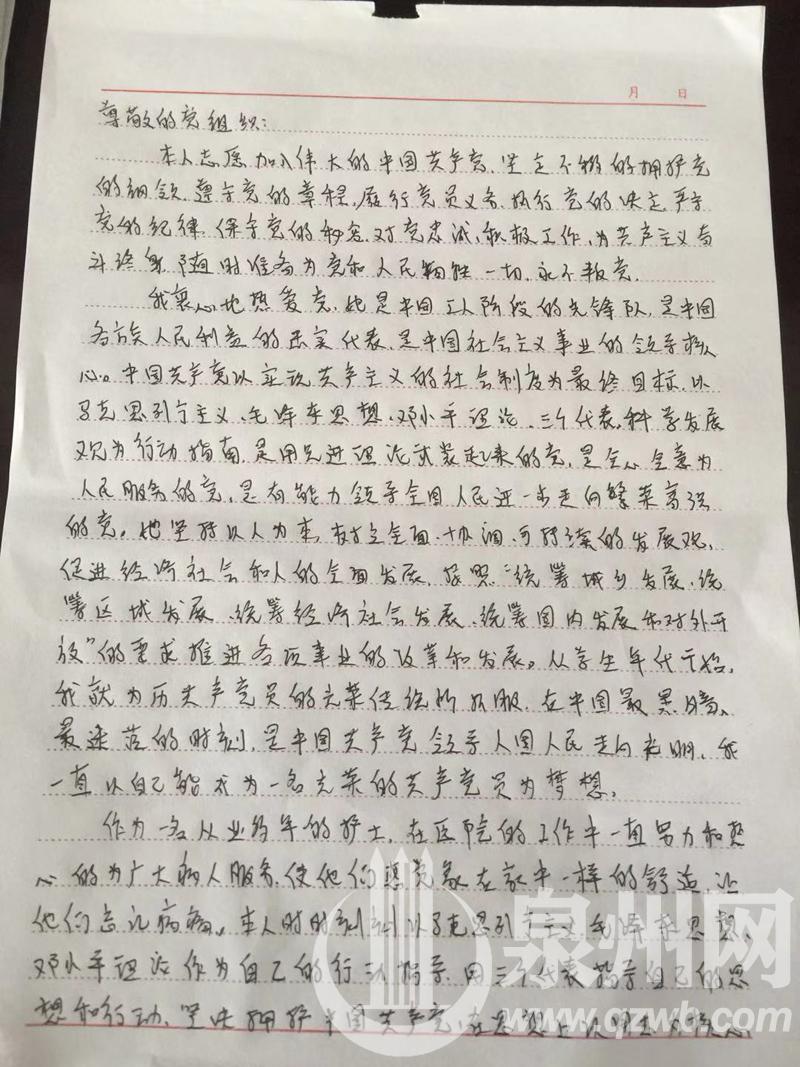 月 日
尊敬的党组织：
本人志愿加入伟大的中国共产党，坚定不移的拥护党
的纲领，遵守党的章程，履行党员义务，执行党的决定，严守
党的纪律，保守党的秘密，对党忠诚，积极工作，为共产主义奋
斗终身，随时准备为党和人民牺牲一切，永不叛党。
我衷心地热爱党，她是中国工人阶段的先锋队，是中国
各族人民利益的忠实代表，是中国社会主义事业的领导核
心。中国共产党以实现共产主义的社会制度为最终目标，以
马克思列宁主义、毛泽东思想、邓小平理论、三个代表、科学发展
观为行动指南，是用先进理论武装起来的党，是全心全意为
人民服务的党，是有能力领导全国人民进一步走向繁荣富强
的党。她坚持以人为本，树立全面、协调、可持续的发展观，
促进经济社会和人的全面发展，按照“统筹城乡发展、统
筹区域发展、统筹经济社会发展、统筹国内发展和对外开
放”的要求推进各项事业的改革和发展。从学生年代开始，
我就为共产党员的光荣传统所折服，在中国最黑暗、
最速落的时刻，是中国共产党领导人国人民走向光明，我
一直以自己能成为一名光荣的共产党员为梦想。
作为一名从业多年的护士，在医院的工作中一直努力和热
心的为广大病人服务，使他们感觉象在家中一样的舒适，让
他们忘记病痛。本人时时刻刻以马克思列宁主义、毛泽东思想、
邓小平理论作为自己的行动指导，用三个代表指导自己的思
想和行动、坚决拥护中国共产党，在思想上
泉州网
www.qzwb.com